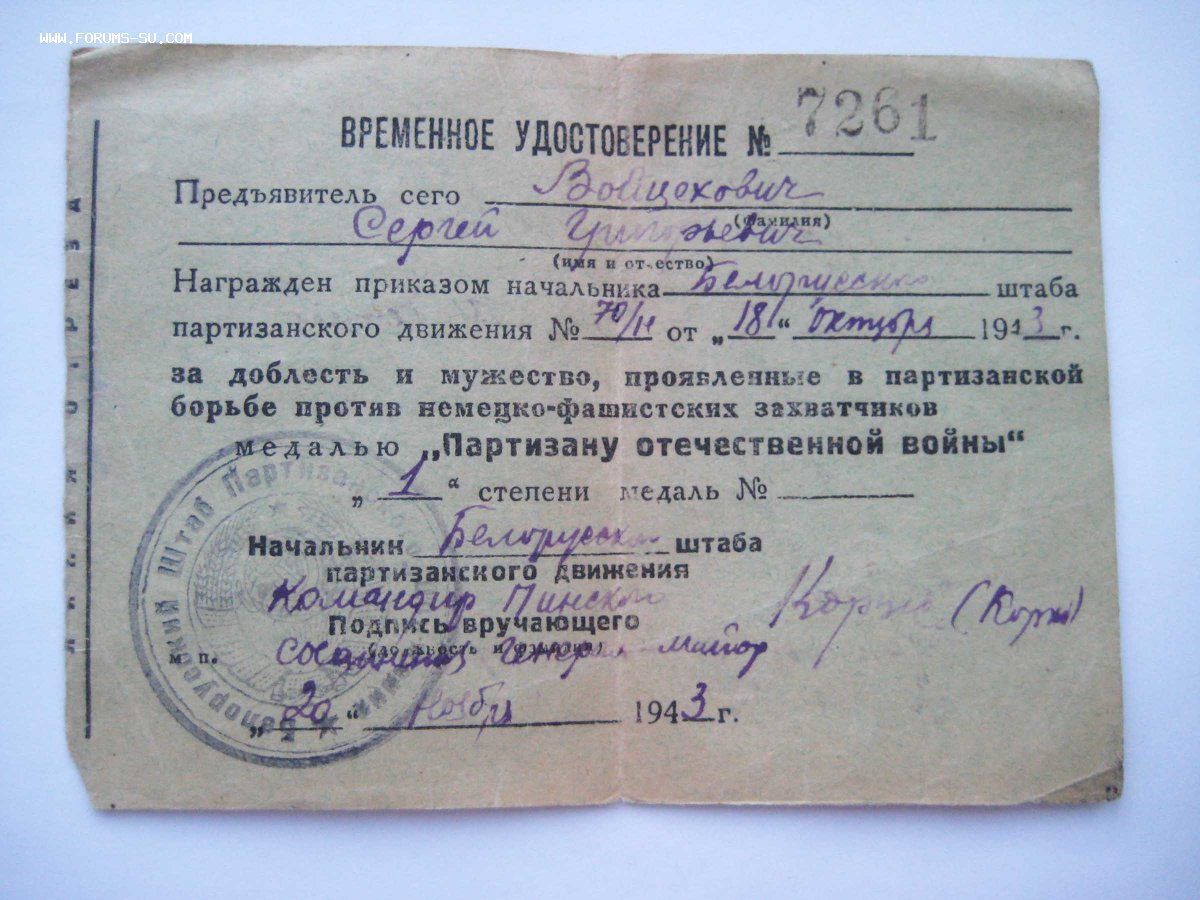 WWW.FORUMS-SU.COM
ВРЕМЕННОЕ УДОСТОВЕРЕНИЕ № 7261
Предъявитель сего Войцехович
(фамилия)
Сергей Григорьевич
(имя и отчество)
Награжден приказом начальника Белорусского штаба
партизанского движения № 70/н от „18“ октября 1943 г.
за доблесть и мужество, проявленные в партизанской
борьбе против немецко-фашистских захватчиков
медалью „Партизану отечественной войны“
„1“ степени медаль №
Начальник Белорусского штаба
партизанского движения
Командир Пинского Корж (Корж)
Подпись вручающего
(должность и фамилия)
м п. соединения генерал-майор
„20“ Ноября 1943 г.
Белорусский Штаб Партизанского
ЛИНИЯ ОТРЕЗА